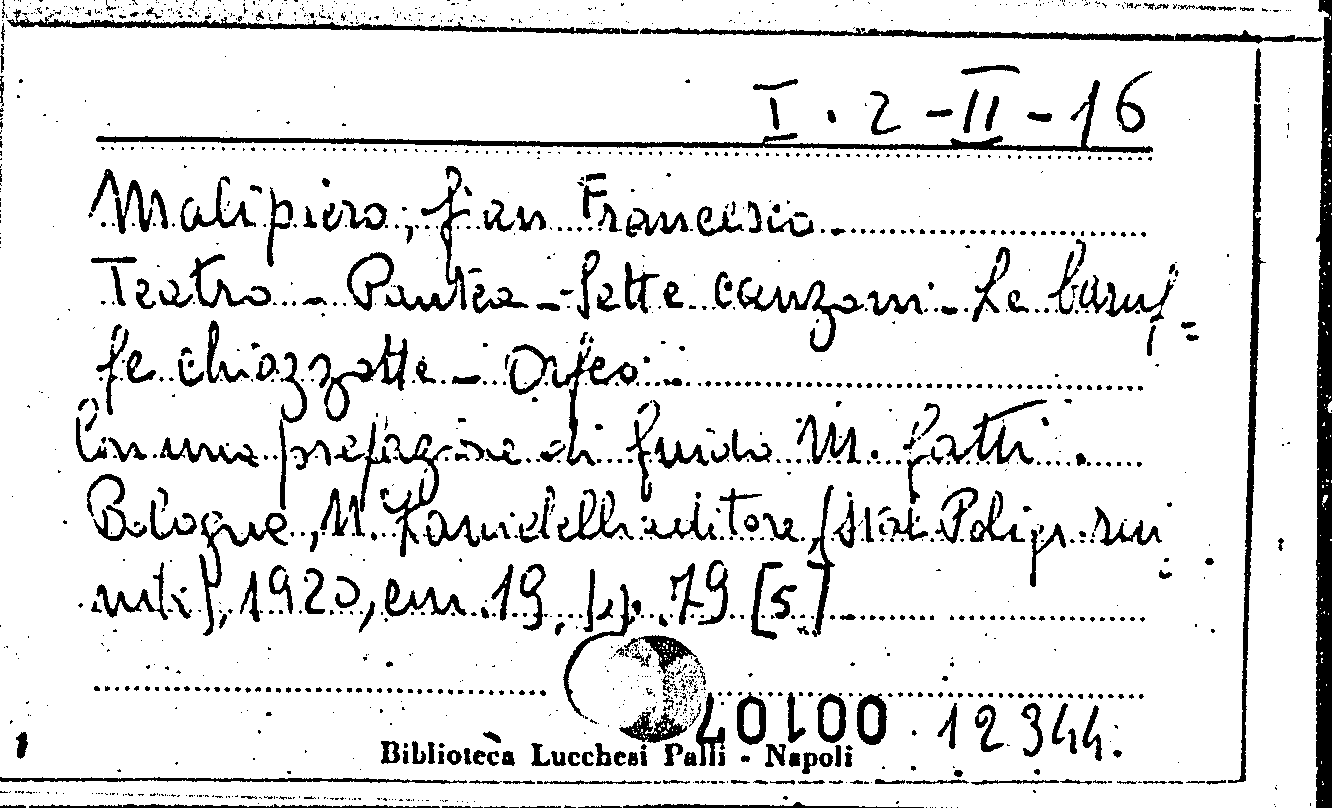 I. 2 - II - 16
Malipiero, Gian Francesco.
Teatro - Pantea - Sette canzoni - Le baruf=
fe chiozzotte - Orfeo.
Con una prefazione di Guido M. Gatti.
Bologna, U. Zanichelli editore, (Stab. Poligr. riu
niti), 1920, cm. 19, pp. 79 [5]
40100 12344.
Biblioteca Lucchesi Palli - Napoli